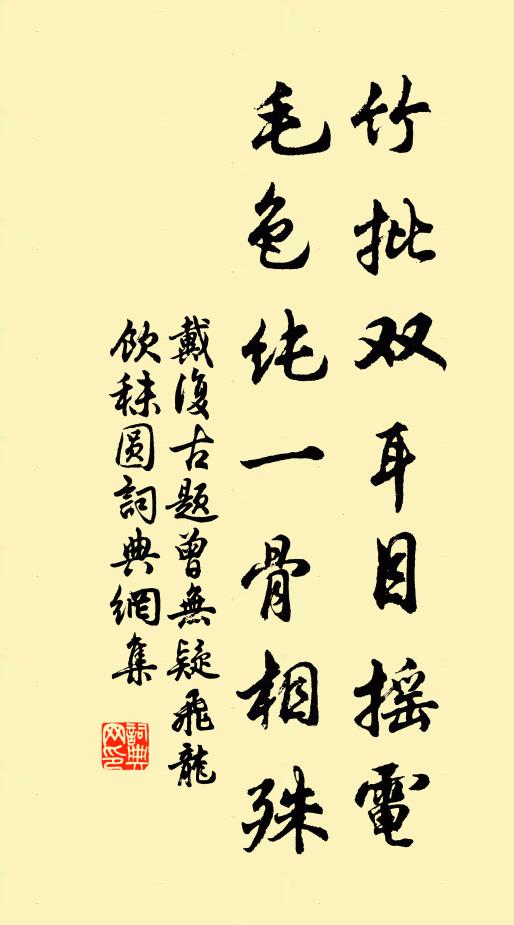 竹批双耳目摇電
毛色纯一骨相殊
戴復古题曾無疑飛龍
飲秣圓詞典網集
詞典网印